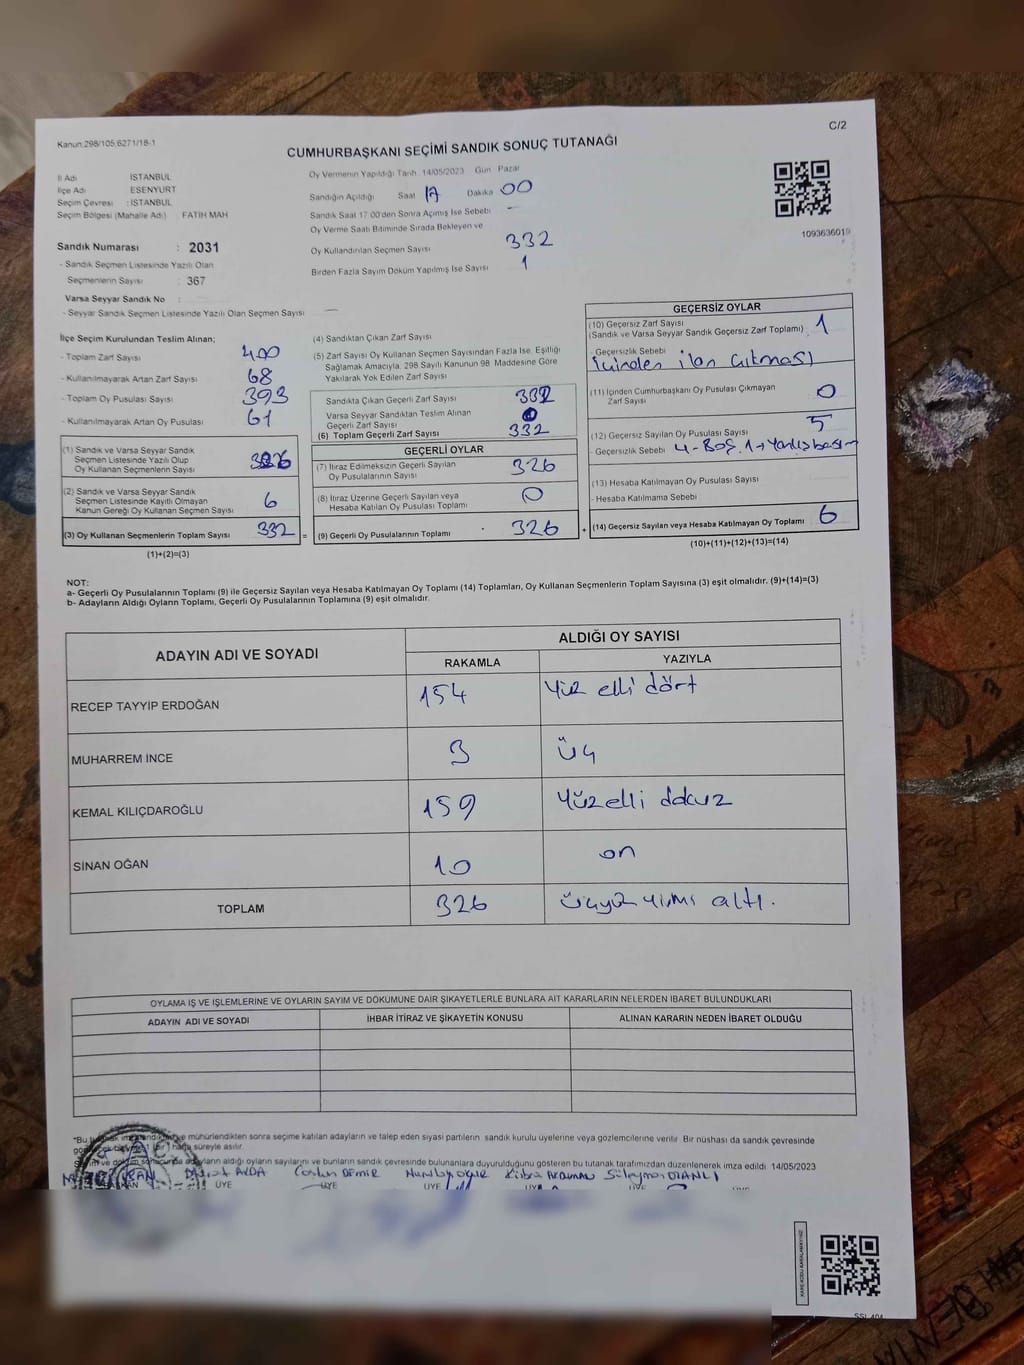 C/2
Kanun:298/105,6271/18-1
CUMHURBAŞKANI SEÇİMİ SANDIK SONUÇ TUTANAĞI
İl Adı : İSTANBUL
İlçe Adı : ESENYURT
Seçim Çevresi : İSTANBUL
Seçim Bölgesi (Mahalle Adı) : FATİH MAH
Sandık Numarası : 2031
- Sandık Seçmen Listesinde Yazılı Olan
Seçmenlerin Sayısı : 367
Varsa Seyyar Sandık No :
- Seyyar Sandık Seçmen Listesinde Yazılı Olan Seçmen Sayısı : —
Oy Vermenin Yapıldığı Tarih: 14/05/2023 Gün Pazar
Sandığın Açıldığı Saat 17 Dakika 00
Sandık Saat 17:00'den Sonra Açılmış İse Sebebi —
Oy Verme Saati Bitiminde Sırada Bekleyen ve
Oy Kullandırılan Seçmen Sayısı 332
Birden Fazla Sayım Döküm Yapılmış İse Sayısı 1
1093636019
İlçe Seçim Kurulundan Teslim Alınan;
- Toplam Zarf Sayısı 400
- Kullanılmayarak Artan Zarf Sayısı 68
- Toplam Oy Pusulası Sayısı 393
- Kullanılmayarak Artan Oy Pusulası 61
(1) Sandık ve Varsa Seyyar Sandık
Seçmen Listesinde Yazılı Olup
Oy Kullanan Seçmenlerin Sayısı 326
(2) Sandık ve Varsa Seyyar Sandık
Seçmen Listesinde Kayıtlı Olmayan
Kanun Gereği Oy Kullanan Seçmen Sayısı 6
(3) Oy Kullanan Seçmenlerin Toplam Sayısı 332
(1)+(2)=(3)
(4) Sandıktan Çıkan Zarf Sayısı
(5) Zarf Sayısı Oy Kullanan Seçmen Sayısından Fazla İse, Eşitliği
Sağlamak Amacıyla, 298 Sayılı Kanunun 98. Maddesine Göre
Yakılarak Yok Edilen Zarf Sayısı
Sandıkta Çıkan Geçerli Zarf Sayısı 332
Varsa Seyyar Sandıktan Teslim Alınan
Geçerli Zarf Sayısı 0
(6) Toplam Geçerli Zarf Sayısı 332
GEÇERLİ OYLAR
(7) İtiraz Edilmeksizin Geçerli Sayılan
Oy Pusulalarının Sayısı 326
(8) İtiraz Üzerine Geçerli Sayılan veya
Hesaba Katılan Oy Pusulası Toplamı 0
= (9) Geçerli Oy Pusulalarının Toplamı 326
GEÇERSİZ OYLAR
(10) Geçersiz Zarf Sayısı
(Sandık ve Varsa Seyyar Sandık Geçersiz Zarf Toplamı) 1
- Geçersizlik Sebebi
içinden ilan çıkması
(11) İçinden Cumhurbaşkanı Oy Pusulası Çıkmayan
Zarf Sayısı 0
(12) Geçersiz Sayılan Oy Pusulası Sayısı 5
- Geçersizlik Sebebi 4-Boş. 1→Yanlış basım
(13) Hesaba Katılmayan Oy Pusulası Sayısı
- Hesaba Katılmama Sebebi
+ (14) Geçersiz Sayılan veya Hesaba Katılmayan Oy Toplamı 6
(10)+(11)+(12)+(13)=(14)
NOT:
a- Geçerli Oy Pusulalarının Toplamı (9) ile Geçersiz Sayılan veya Hesaba Katılmayan Oy Toplamı (14) Toplamları, Oy Kullanan Seçmenlerin Toplam Sayısına (3) eşit olmalıdır. (9)+(14)=(3)
b- Adayların Aldığı Oyların Toplamı, Geçerli Oy Pusulalarının Toplamına (9) eşit olmalıdır.
ADAYIN ADI VE SOYADI ALDIĞI OY SAYISI
RAKAMLA YAZIYLA
RECEP TAYYİP ERDOĞAN 154 Yüz elli dört
MUHARREM İNCE 3 Üç
KEMAL KILIÇDAROĞLU 159 Yüzelli dokuz
SİNAN OĞAN 10 on
TOPLAM 326 Üçyüz yirmi altı.
OYLAMA İŞ VE İŞLEMLERİNE VE OYLARIN SAYIM VE DÖKÜMÜNE DAİR ŞİKAYETLERLE BUNLARA AİT KARARLARIN NELERDEN İBARET BULUNDUKLARI
ADAYIN ADI VE SOYADI İHBAR İTİRAZ VE ŞİKAYETİN KONUSU ALINAN KARARIN NEDEN İBARET OLDUĞU
*Bu mühürlendikten sonra seçime katılan adayların ve talep eden siyasi partilerin sandık kurulu üyelerine veya gözlemcilerine verilir. Bir nüshası da sandık çevresinde
hafta süreyle asılır.
adayların aldığı oyların sayılarını ve bunların sandık çevresinde bulunanlara duyurulduğunu gösteren bu tutanak tarafımızdan düzenlenerek imza edildi. 14/05/2023
DEMİR Süleyman
ÜYE ÜYE ÜYE
SSİ 404